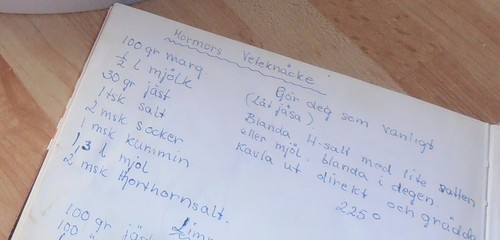 Mormors Veteknäcke
100 gr marg.
½ l mjölk
30 gr jäst
1 tsk salt
2 msk socker
1 msk kummin
1,3 l mjöl
2 msk hjorthornsalt.
Gör deg som vanligt
(Låt jäsa).
Blanda H-salt med lite vatten
eller mjöl. blanda i degen.
Kavla ut direkt och grädda
225°
100 gr jäst
100